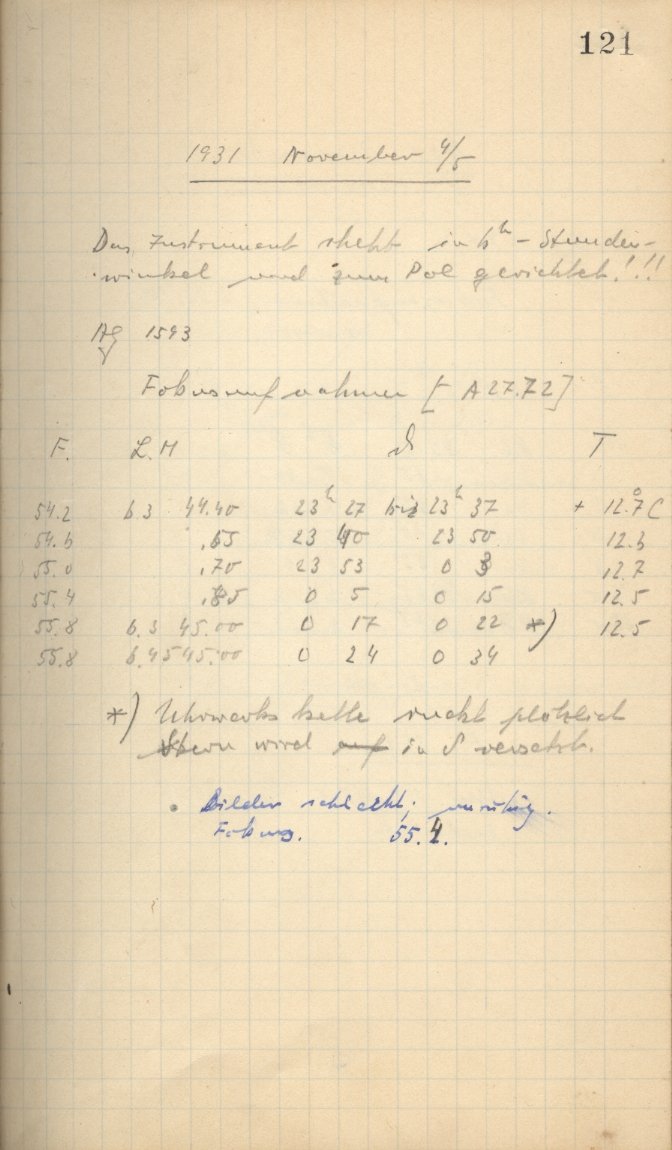 121
1931 November 4/5
Das Instrument steht in 6h - Stunden-
winkel und zum Pol gerichtet!!!
Ag 1593
Fokusaufnahmen [ A 27.72]
F. L.M T
54.2 6.3 44.40 23h 27 bis 23h 37 + 12.7°C
54.6 .55 23 40 23 50 12.3
55.0 .70 23 53 0 3 12.7
55.4 .85 0 5 0 15 12.5
55.8 6.3 45.00 0 17 0 22 *) 12.5
55.8 6.45 45.00 0 24 0 34
*) Uhrwerks kette ruckt plötzlich
Stern wird auf in δ versetzt.
Bilder schlecht, unruhig.
Fokus. 55.4.